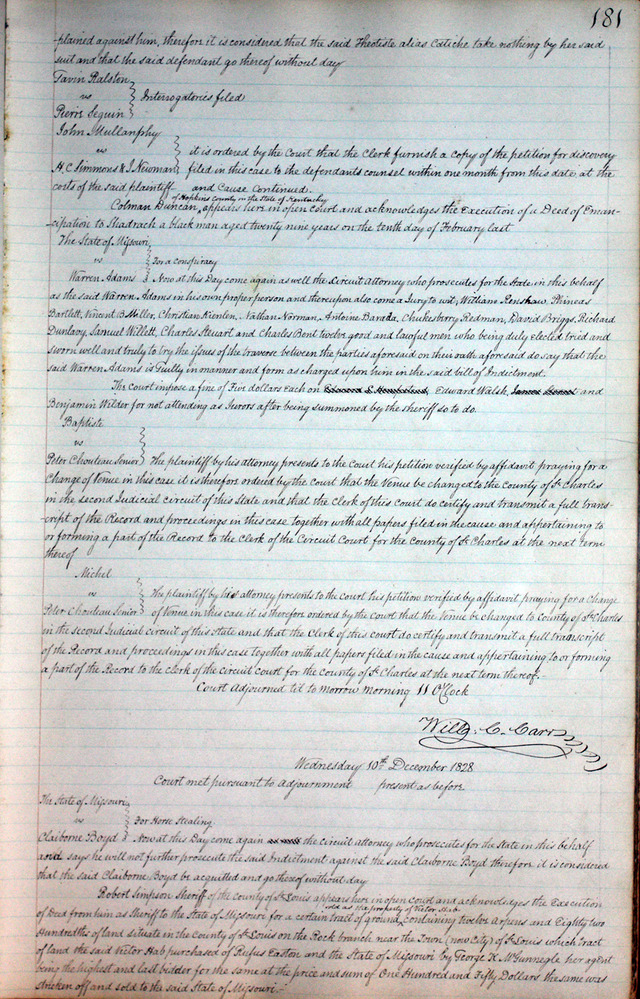 181
plained against him, therefore it is considered that the said Theotiste alias Catiche take nothing by her said
suit and that the said defendant go thereof without day
Tavin Ralston
vs } Interrogatories filed
Pierre Seguin
John Mullanphy
vs } it is ordered by the Court that the Clerk furnish a copy of the petition for discovery
H. C. Simmons & J Newman filed in this case to the defendants counsel within one month from this date, at the
costs of the said plaintiff and Cause Continued.
of Hopkins County in the State of Kentucky
Colman Duncan, appears here in open court and acknowledges the Execution of a Deed of Eman-
-cipation to Shadrach a black man aged twenty nine years on the tenth day of February last
The State of Missouri
vs } For a conspiracy
Warren Adams } Now at this Day come again as well the Circuit Attorney who prosecutes for the State, in this behalf
as the said Warren Adams in his own proper person and thereupon also come a Jury to wit; William Renshaw, Phineas
Bartlett, Vincent B Miller, Christian Kienlen, Nathan Norman, Antoine Barada, Chukesberry Redman, David Briggs, Richard
Dunlavy, Samuel Willett, Charles Steuart and Charles Bent twelve good and lawful men who being duly elected tried and
sworn well and truly to try the issues of the traverse between the parties aforesaid on their oath aforesaid do say that the
said Warren Adams is Guilty in manner and form as charged upon him in the said bill of Indictment.
The Court impose a fine of Five dollars Each on Edward Walsh, and
Benjamin Wilder for not attending as Jurors after being summoned by the sheriff so to do.
Baptiste
vs
Peter Chouteau Senior } The plaintiff by his attorney presents to the Court his petition verified by affidavit praying for a
Change of Venue in this case it is therefore ordered by the Court that the Venue be changed to the County of St Charles
in the second Judicial circuit of this State and that the Clerk of this Court do certify and transmit a full trans-
-cript of the Record and proceedings in this case together with all papers filed in the cause and appertaining to
or forming a part of the Record to the Clerk of the Circuit Court for the County of St Charles at the next term
thereof
Michel
vs } The plaintiff by his attorney presents to the Court his petition verified by affidavit praying for a Change
Peter Chouteau Senior } of Venue in this case it is therefore ordered by the Court that the Venue be changed to County of St Charles
in the second Judicial circuit of this State and that the Clerk of this court do certify and transmit a full transcript
of the Record and proceedings in this case together with all papers filed in the cause and appertaining to or forming
a part of the Record to the Clerk of the circuit court for the county of St Charles at the next term thereof.-
Court Adjourned til to morrow morning 11 O'Clock
Will. C. Carr
Wednesday 10th December 1828
Court met pursuant to Adjournment present as before
The State of Missouri
vs } For Horse Stealing
Claiborne Boyd } Now at this Day come again the circuit attorney who prosecutes for the State in this behalf
and says he will not further prosecute the said Indictment against the said Claiborne Boyd therefore it is considered
that the said Claiborne Boyd be acquitted and go thereof without day
Robert Simpson Sheriff of the county of St Louis appears here in open court and acknowledges the Execution
sold as the property of Victor Hab
of Deed from him as Sheriff to the State of Missouri for a certain tract of ground, containing twelve Arpens and Eighty two
Hundredths of land situate in the County of St Louis on the Rock branch near the Town (now City) of St Louis which tract
of land the said Victor Hab purchased of Rufus Easton and the State of Missouri by George K. McGunnegle her agent
being the highest and last bidder for the same at the price and sum of One Hundred and Fifty Dollars the same was
stricken off and sold to the said State of Missouri.-